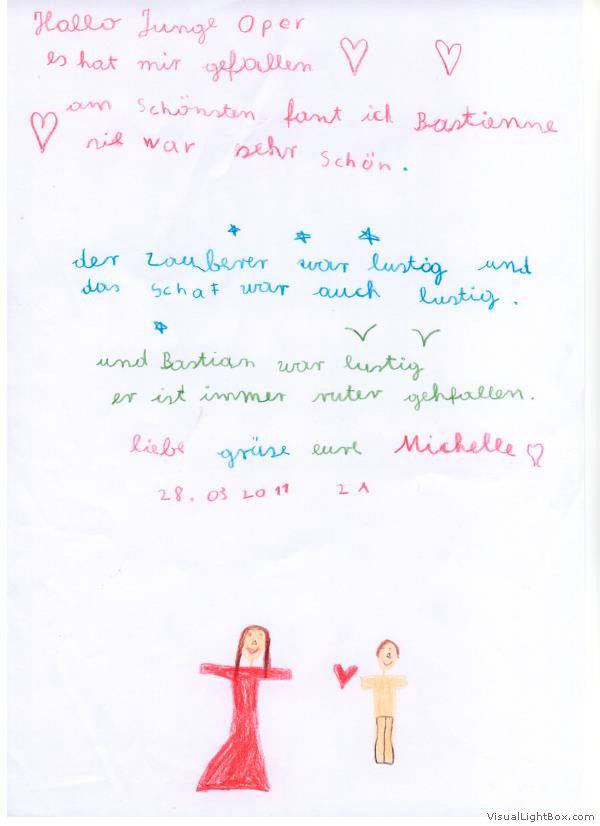 Hallo Junge Oper
es hat mir gefallen
am schönsten fant ich Bastienne
sie war sehr schön.
der zauberer war lustig und
das Schaf war auch lustig.
und Bastian war lustig
er ist immer ruter gehfallen.
liebe grüse eure Michelle
28.03 2011 2A
VisualLightBox.com